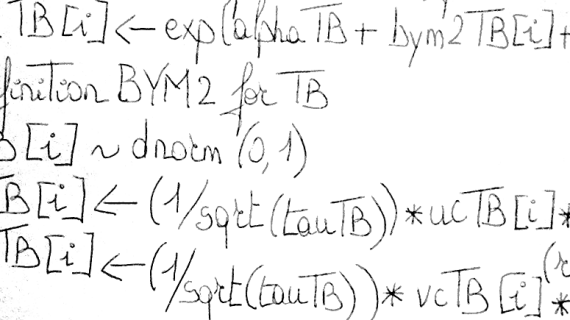 TB[i] <- exp(alphaTB + bym2TB[i] +
finition BYM2 for TB
B[i] ~ dnorm (0,1)
B[i] <- (1/sqrt(tauTB)) * ucTB[i] *
TB[i] <- (1/sqrt(tauTB)) * vcTB[i] *